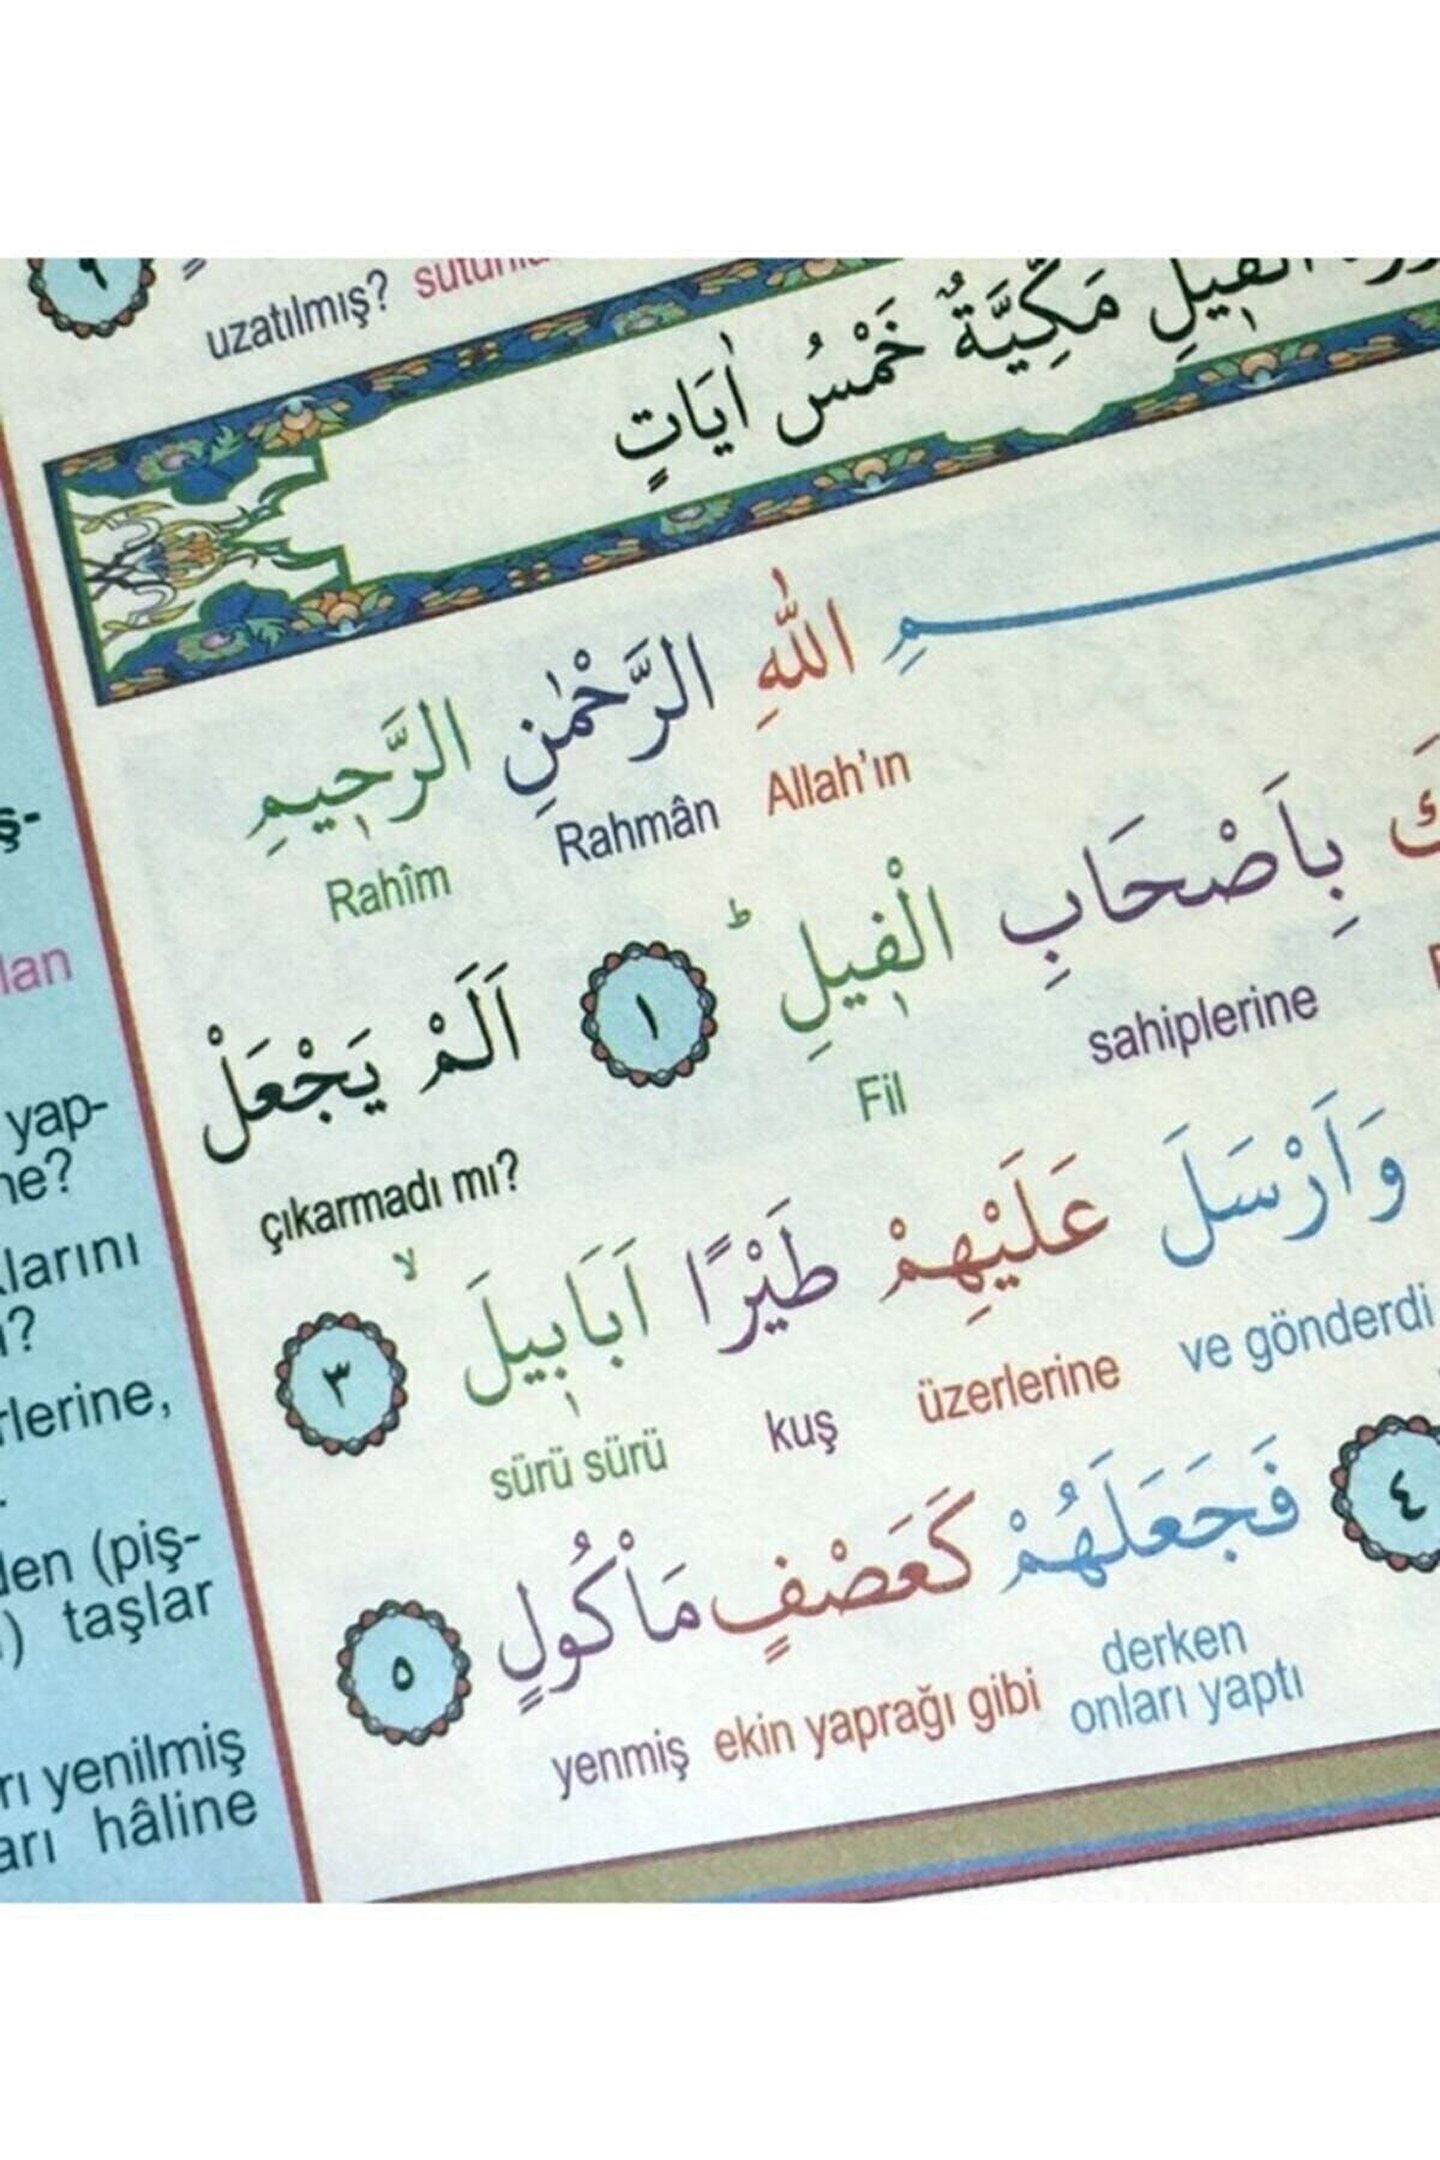 ٩
uzatılmış?
الْفٖيلِ مَكِّيَّةٌ خَمْسُ اٰيَاتٍ
اللّٰهِ الرَّحْمٰنِ الرَّحٖيمِ
Allah’ın Rahmân Rahîm
بِاَصْحَابِ الْفٖيلِ ؕ ١ اَلَمْ يَجْعَلْ
sahiplerine Fil çıkarmadı mı?
وَاَرْسَلَ عَلَيْهِمْ طَيْرًا اَبَابٖيلَ ۙ ٣
ve gönderdi üzerlerine kuş sürü sürü
٤ فَجَعَلَهُمْ كَعَصْفٍ مَاْكُولٍ ٥
derken onları yaptı ekin yaprağı gibi yenmiş
ş-
lan
yap-
ne?
larını
?
rlerine,
den (piş-
) taşlar
rı yenilmiş
arı hâline